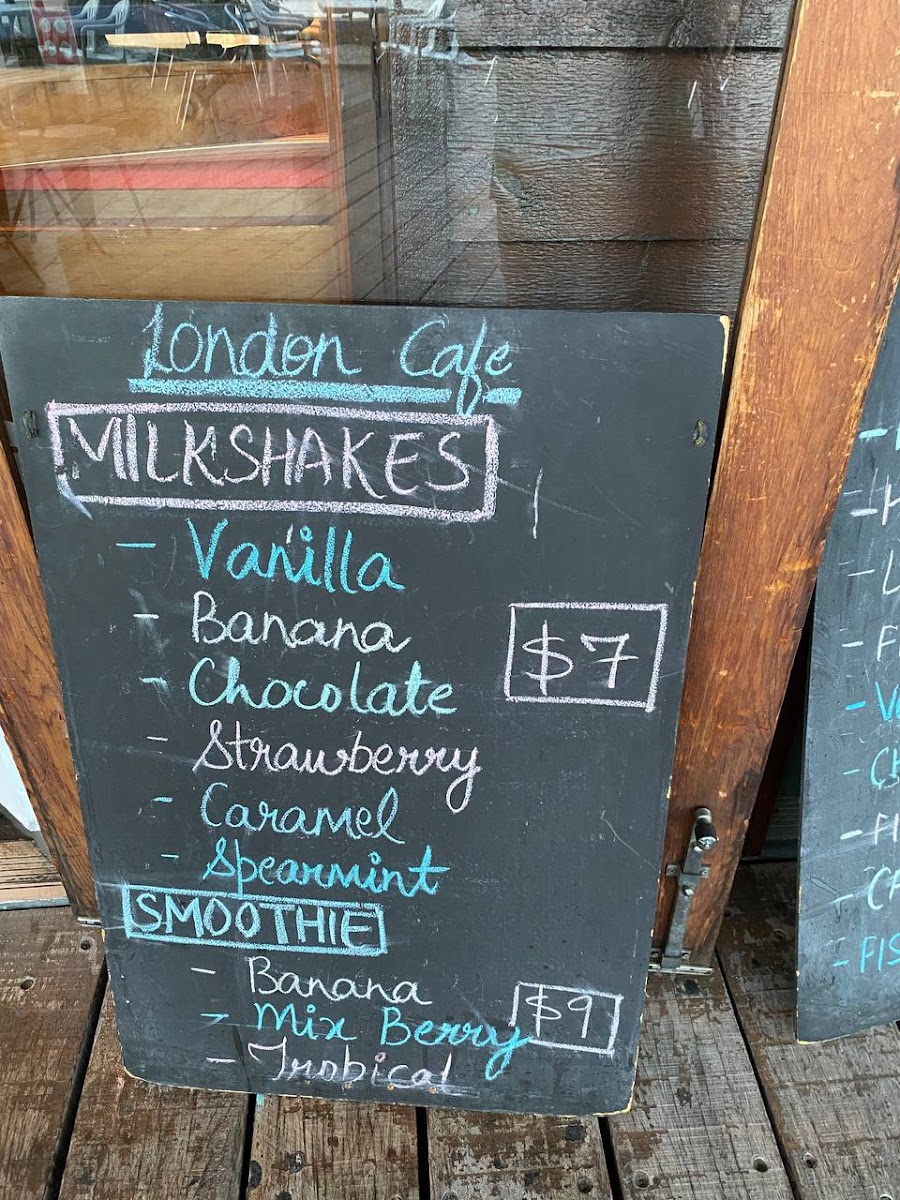 London Cafe
MILKSHAKES
- Vanilla
- Banana
- Chocolate
- Strawberry
- Caramel
- Spearmint
$7
SMOOTHIE
- Banana
- Mix Berry
- Tropical
$9
- FIS